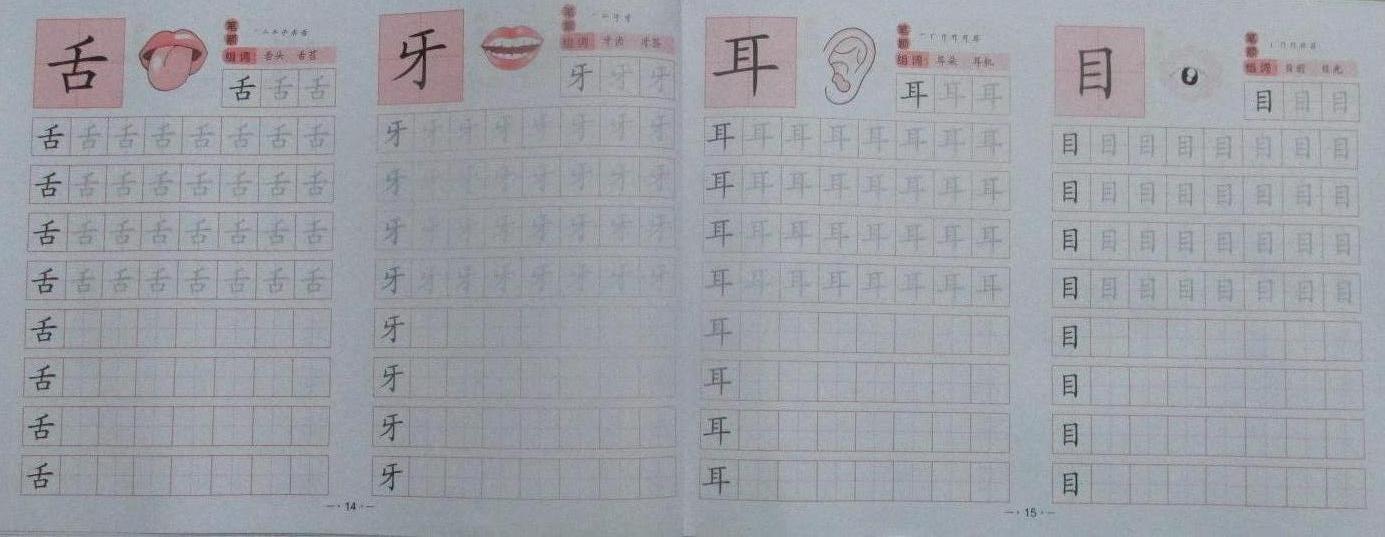 舌
笔顺
组词 舌头 舌苔
舌 舌 舌
舌 舌 舌 舌 舌 舌 舌 舌
舌 舌 舌 舌 舌 舌 舌 舌
舌 舌 舌 舌 舌 舌 舌 舌
舌 舌 舌 舌 舌 舌 舌 舌
舌
舌
舌
舌
牙
笔顺
组词 牙齿 牙签
牙 牙 牙
牙 牙 牙 牙 牙 牙 牙 牙
牙 牙 牙 牙 牙 牙 牙 牙
牙 牙 牙 牙 牙 牙 牙 牙
牙 牙 牙 牙 牙 牙 牙 牙
牙
牙
牙
牙
14
耳
笔顺
组词 耳朵 耳机
耳 耳 耳
耳 耳 耳 耳 耳 耳 耳 耳
耳 耳 耳 耳 耳 耳 耳 耳
耳 耳 耳 耳 耳 耳 耳 耳
耳 耳 耳 耳 耳 耳 耳 耳
耳
耳
耳
耳
目
笔顺
组词 目前 目光
目 目 目
目 目 目 目 目 目 目 目
目 目 目 目 目 目 目 目
目 目 目 目 目 目 目 目
目 目 目 目 目 目 目 目
目
目
目
目
15